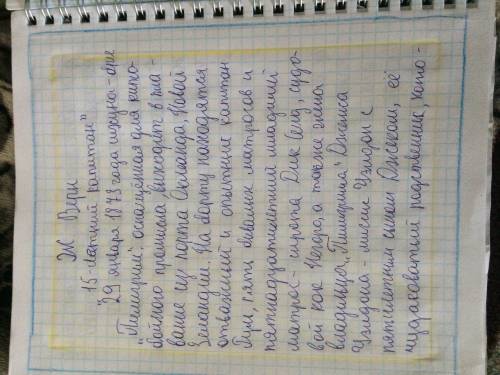 Ж Верн
15-летний капитан"
"29 января 1873 года шхуна-бриг
"Пилигрим", оснащённая для кито-
бойного промысла выходит в пла-
вание из порта Окленда, Новая
Зеландия. На борту находятся
отважный и опытный капитан
Гуль, пять бывалых матросов и
пятнадцатилетний младший
матрос - сирота Дик Сенд, судо-
вой кок Негоро, а также жена
владельца "Пилигрима" Джемса
Уэлдона - миссис Уэлдон с
пятилетним сыном Джеком, её
чудаковатый родственник, кото-